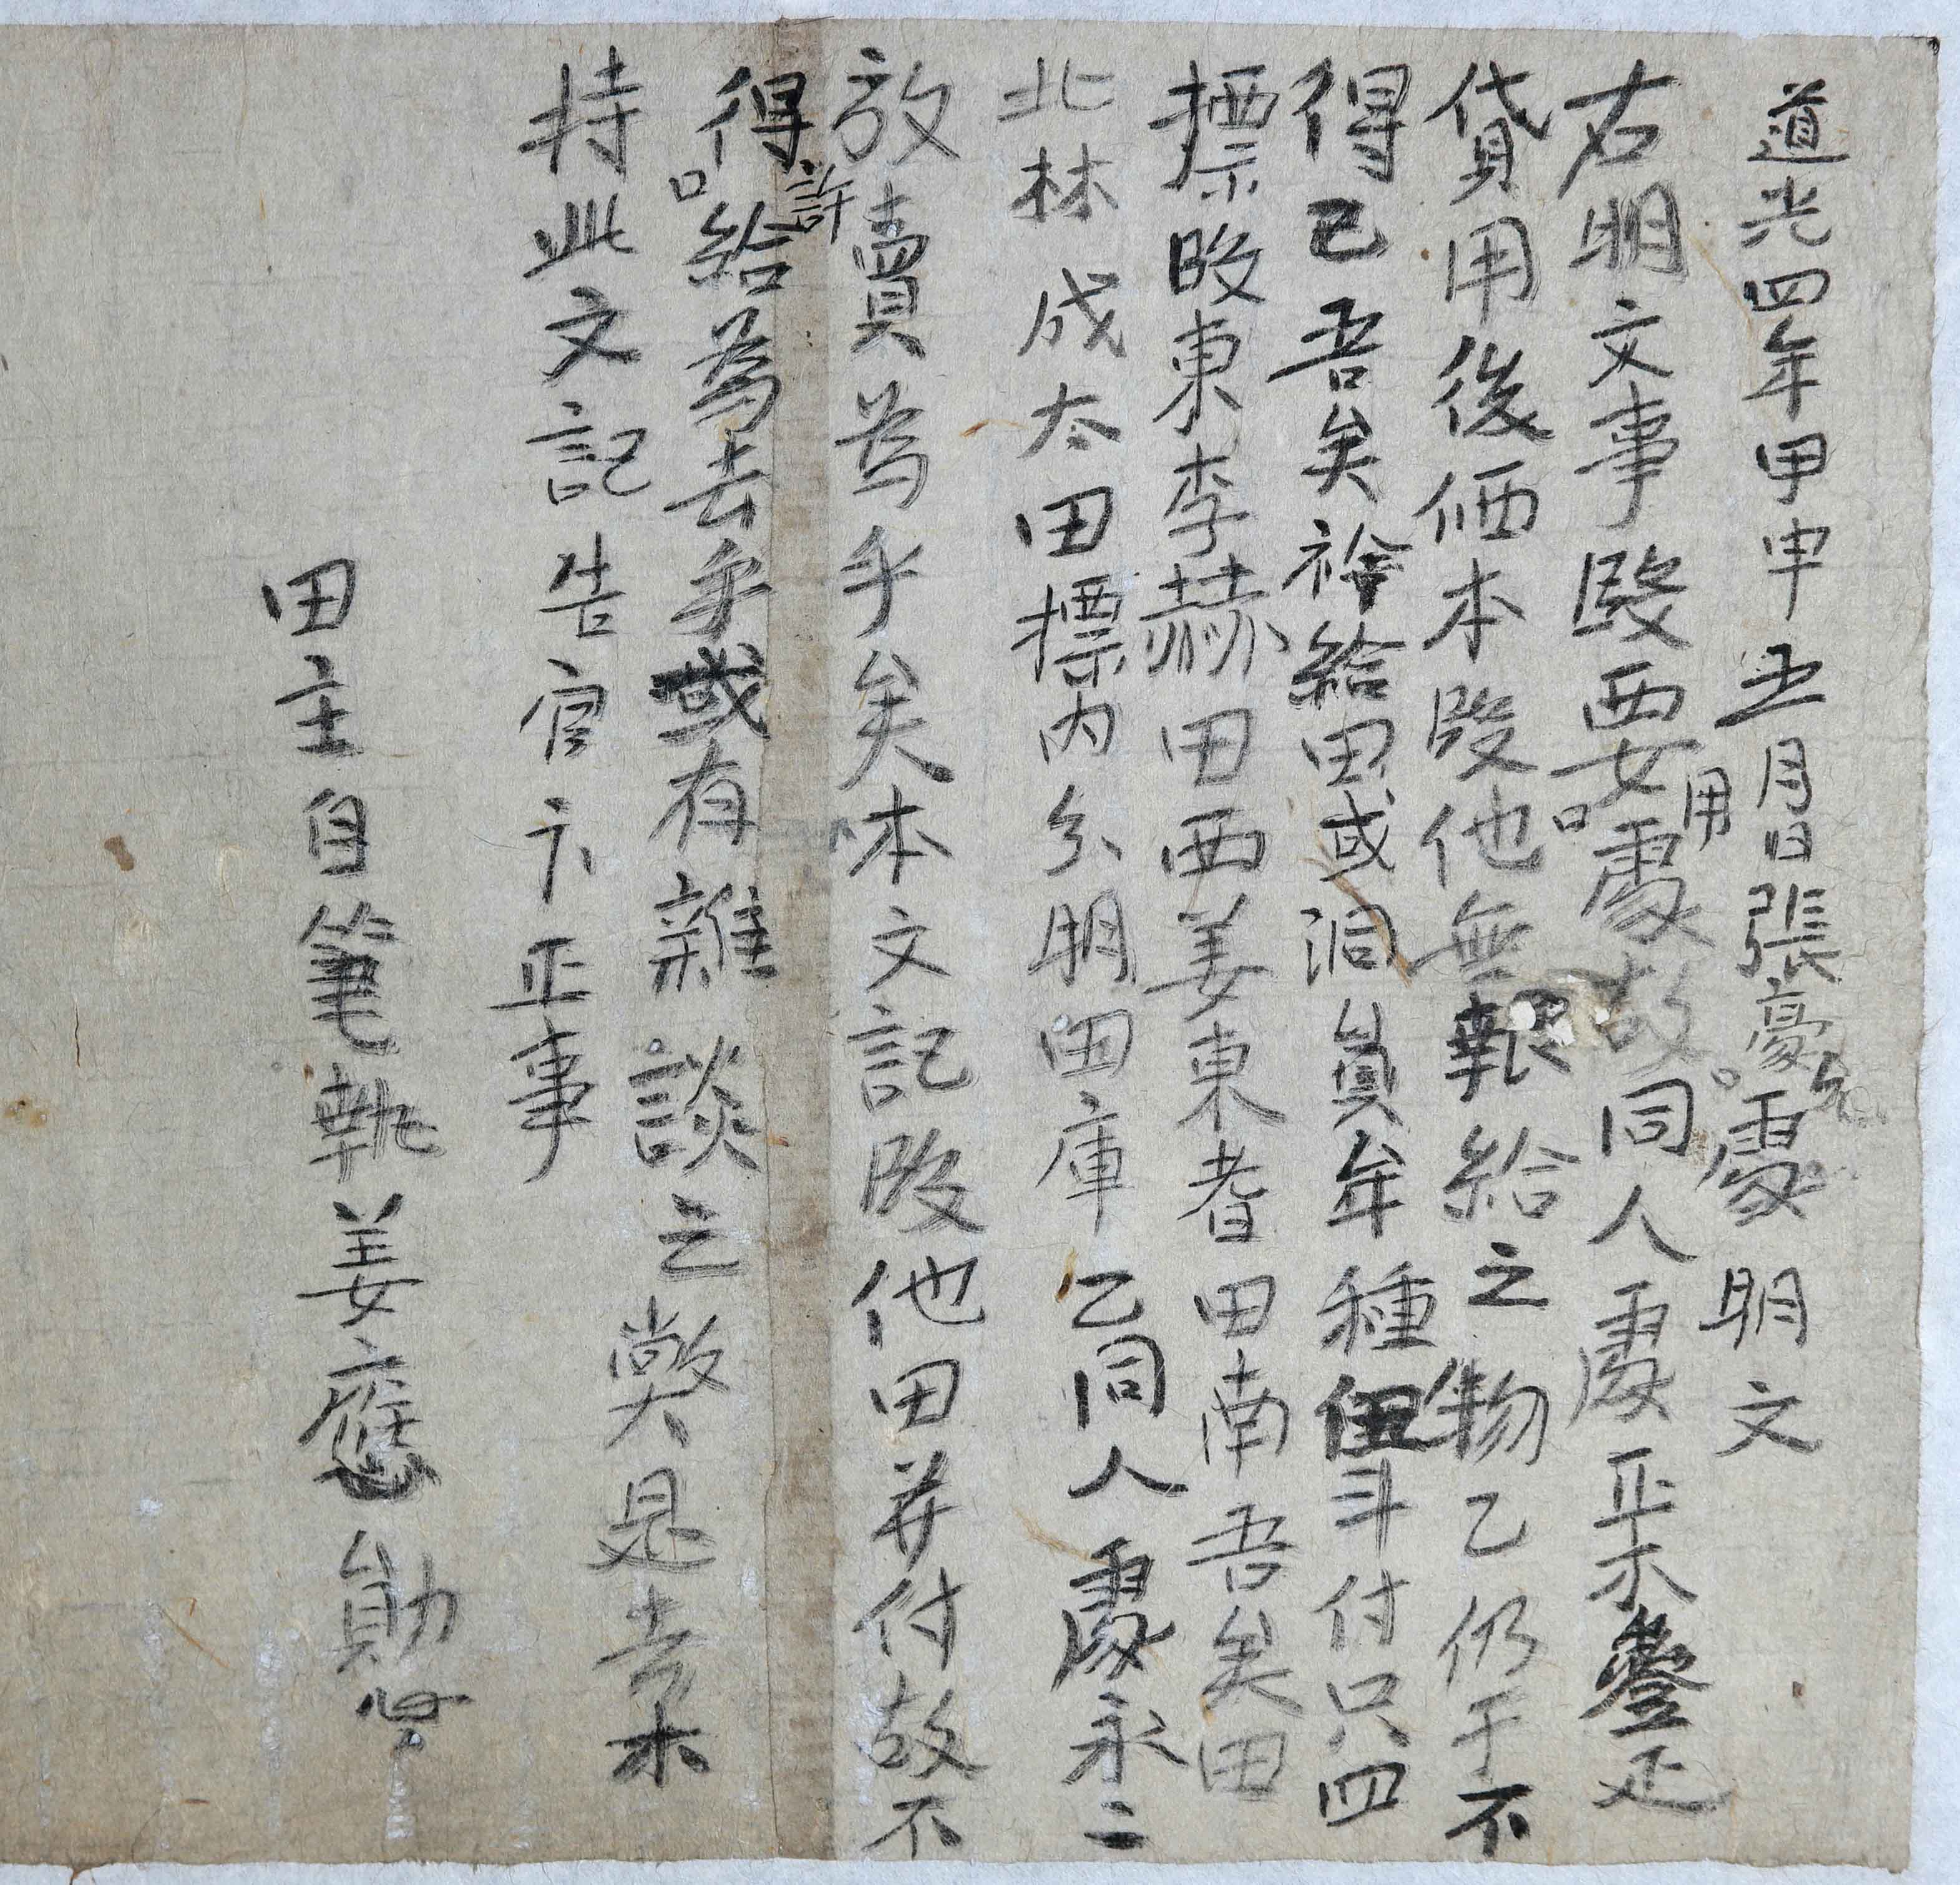 道光四年甲申五月日張豪處明文
右明文事段要用處故同人處正木參疋
貸用後価本段他無報給之物乙仍于不
得已吾矣衿給田或洞員牟種伍斗付只四
標段東李赫田西姜東耆田南吾矣田
北林成太田標內分明田庫乙同人處永二
放賣爲乎矣本文記段他田并付故不
得許給爲去乎或有雜談之獘是去朩
持此文記告官卞正事
田主自筆執姜應勛